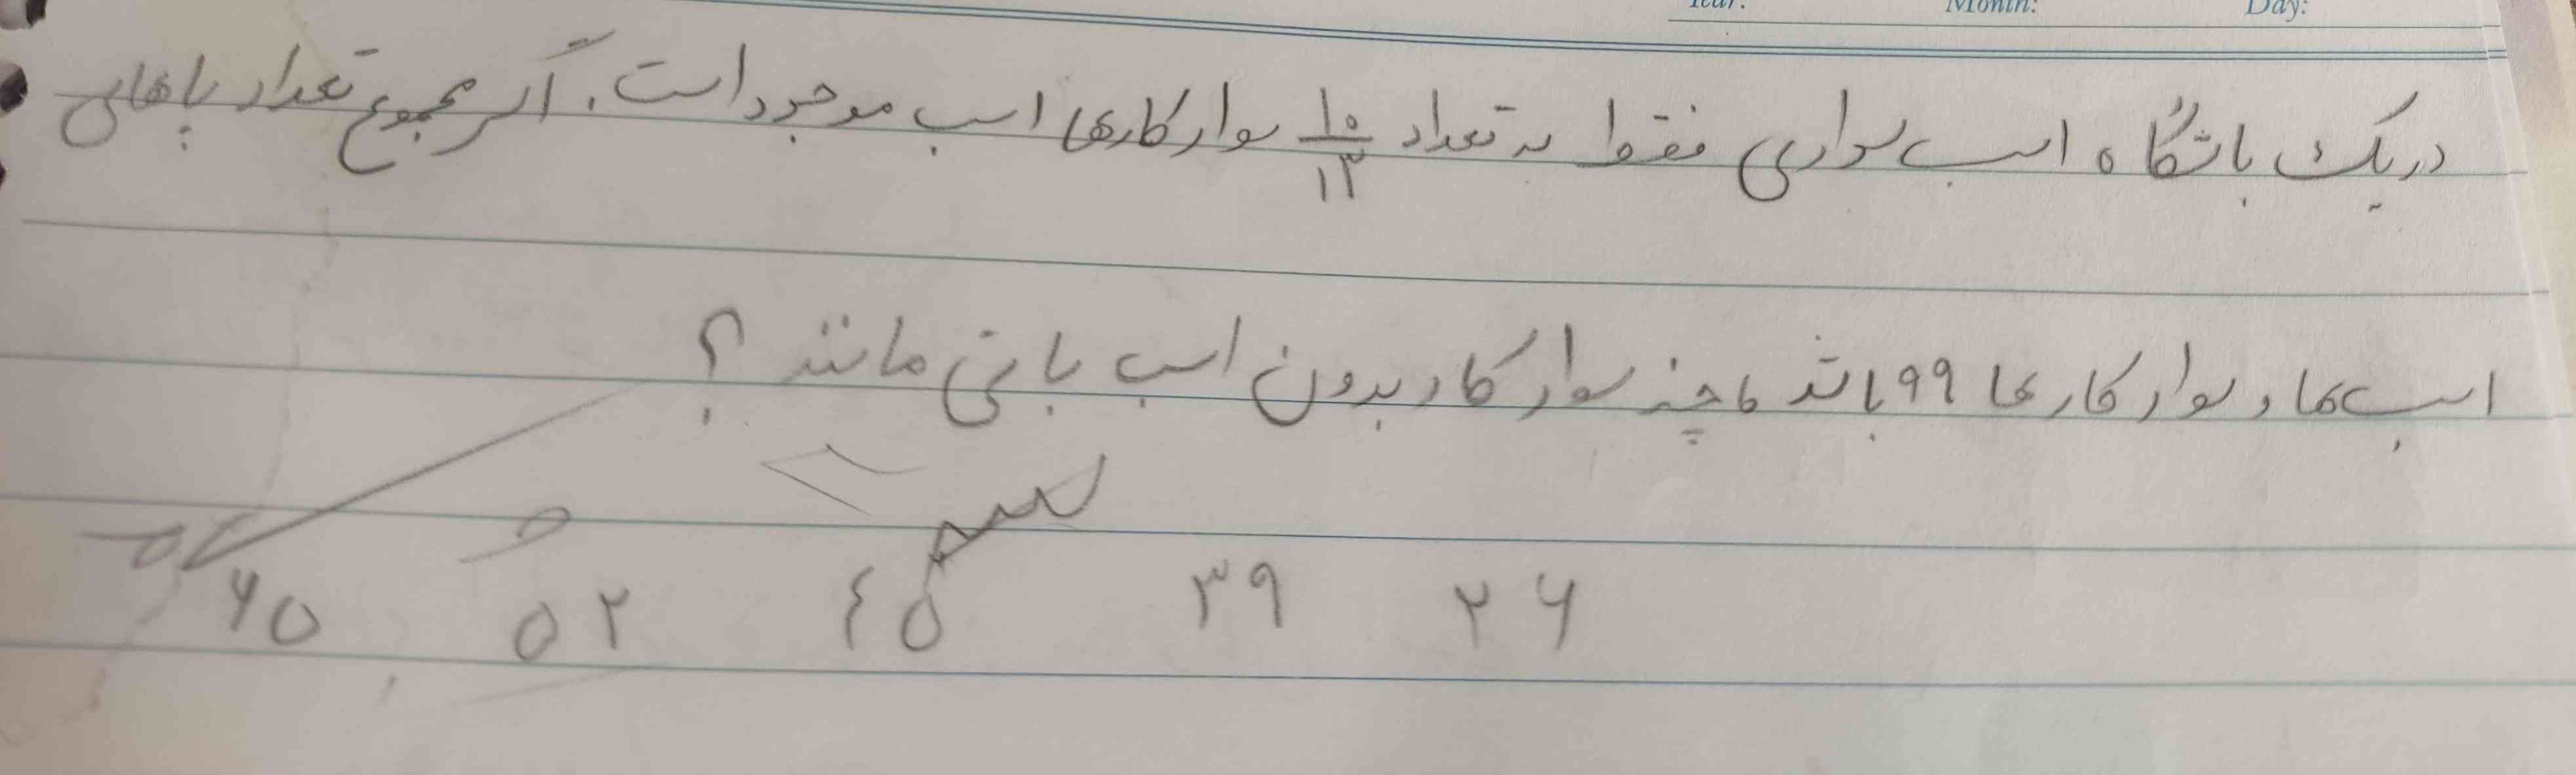 Year: Month: Day:
در یک باشگاه اسب سواری فقط به تعداد ۱۰/۱۳ سوارکارها اسب موجود است. اگر مجموع تعداد پاهای
اسب‌ها و سوارکارها ۹۹ باشد، چند سوارکار بدون اسب باقی مانند؟
۲۶ ۳۹ ۴۵ ۵۲ ۶۵